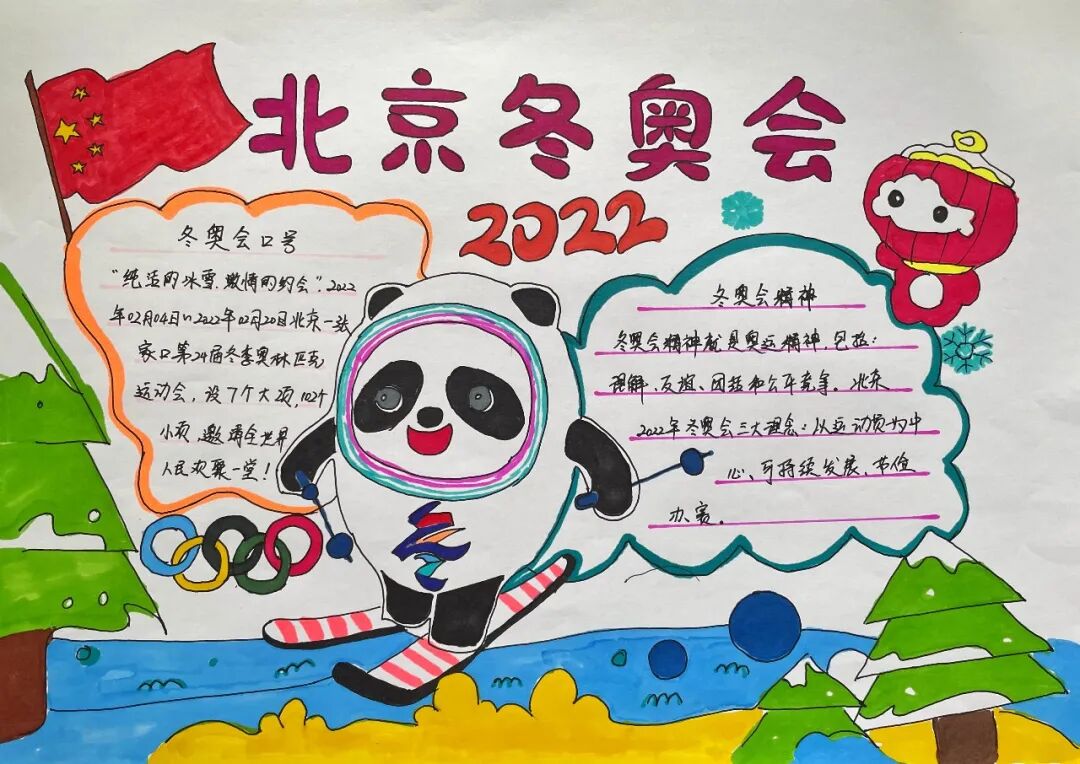 北京冬奥会
2022
冬奥会口号
“纯洁的冰雪,激情的约会”.2022
年02月04日~2022年02月20日北京一张
家口第24届冬季奥林匹克
运动会,设7个大项,102个
小项,邀请全世界
人民欢聚一堂!
冬奥会精神
冬奥会精神就是奥运精神,包括:
理解、友谊、团结和公平竞争。北京
2022年冬奥会三大理念:以运动员为中
心、可持续发展、节俭
办赛。